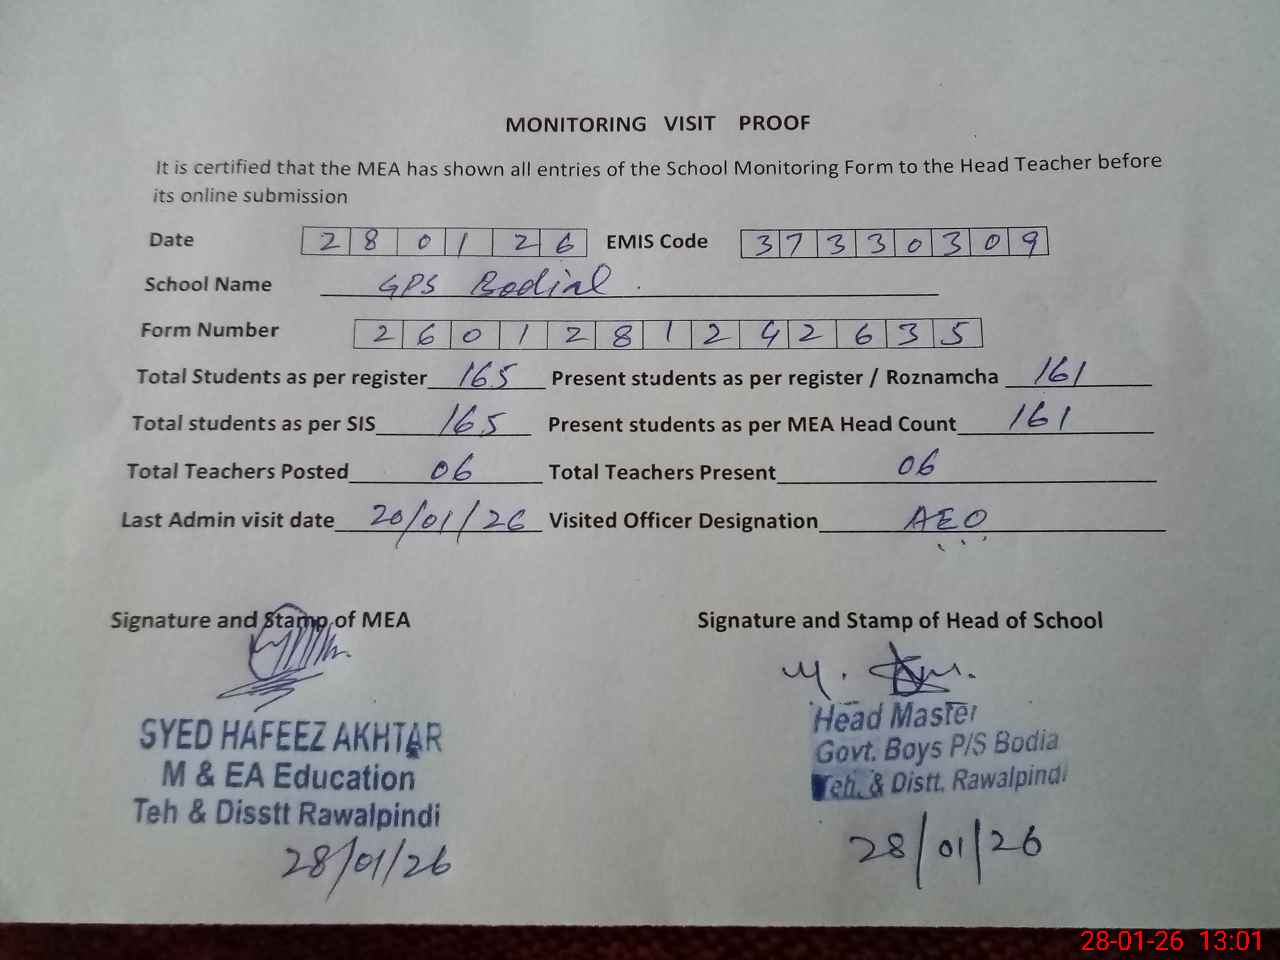 MONITORING VISIT PROOF
It is certified that the MEA has shown all entries of the School Monitoring Form to the Head Teacher before
its online submission
Date 28 01 26 EMIS Code 37330309
School Name GPS Bodial
Form Number 2601281242635
Total Students as per register 165 Present students as per register / Roznamcha 161
Total students as per SIS 165 Present students as per MEA Head Count 161
Total Teachers Posted 06 Total Teachers Present 06
Last Admin visit date 20/01/26 Visited Officer Designation AEO
Signature and Stamp of MEA Signature and Stamp of Head of School
SYED HAFEEZ AKHTAR
M & EA Education
Teh & Disstt Rawalpindi
28/01/26
Head Master
Govt. Boys P/S Bodia
Teh. & Distt. Rawalpindi
28/01/26
28-01-26 13:01